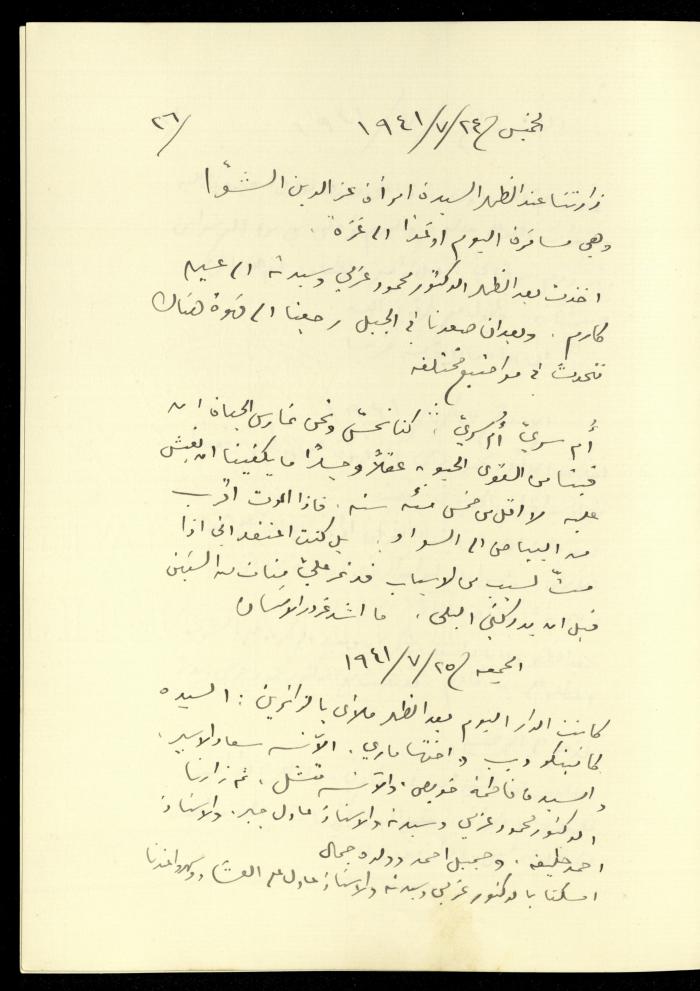 ٢٦/
الخميس ٢٤/٧/١٩٤١
زارتنا عند الظهر السيدة امرأة عز الدين الشوّا
وهي مسافرة اليوم او غدا الى غزة.
اخذت بعد الظهر الدكتور محمود عزمي وسيدته الى عين
كارم. وبعد ان صعدنا في الجبل رجعنا الى قهوة هناك
نتحدث في مواضيع مختلفه
أم سريّ أم سريّ: كنا نحسّ ونحن نمارس الحياة ان
فينا من القوى الحيويه عقلاً وجسدًا ما يكفينا ان نعيش
عليه لا اقل من خمس مئه سنه. فاذا الموت اقرب
من البياض الى السواد. بل كنت اعتقد اني اذا
متّ لسبب من الاسباب فقد تمر عليّ مئات من السنين
قبل ان يدركني البلى. ما اشد غرور الانسان
الجمعه ٢٥/٧/١٩٤١
كانت الدار اليوم بعد الظهر ملأى بالزائرين: السيده
واختها ماري. الآنسه سعاد
والسيده فاطمة والآنسه. ثم زارنا
الدكتور محمود عزمي وسيدته والاستاذ عادل جبر. والاستاذ
احمد خليفه. وجميل احمد وولده جمال
امسكنا بالدكتور عزمي وسيدته والاستاذ عادل على العشاء